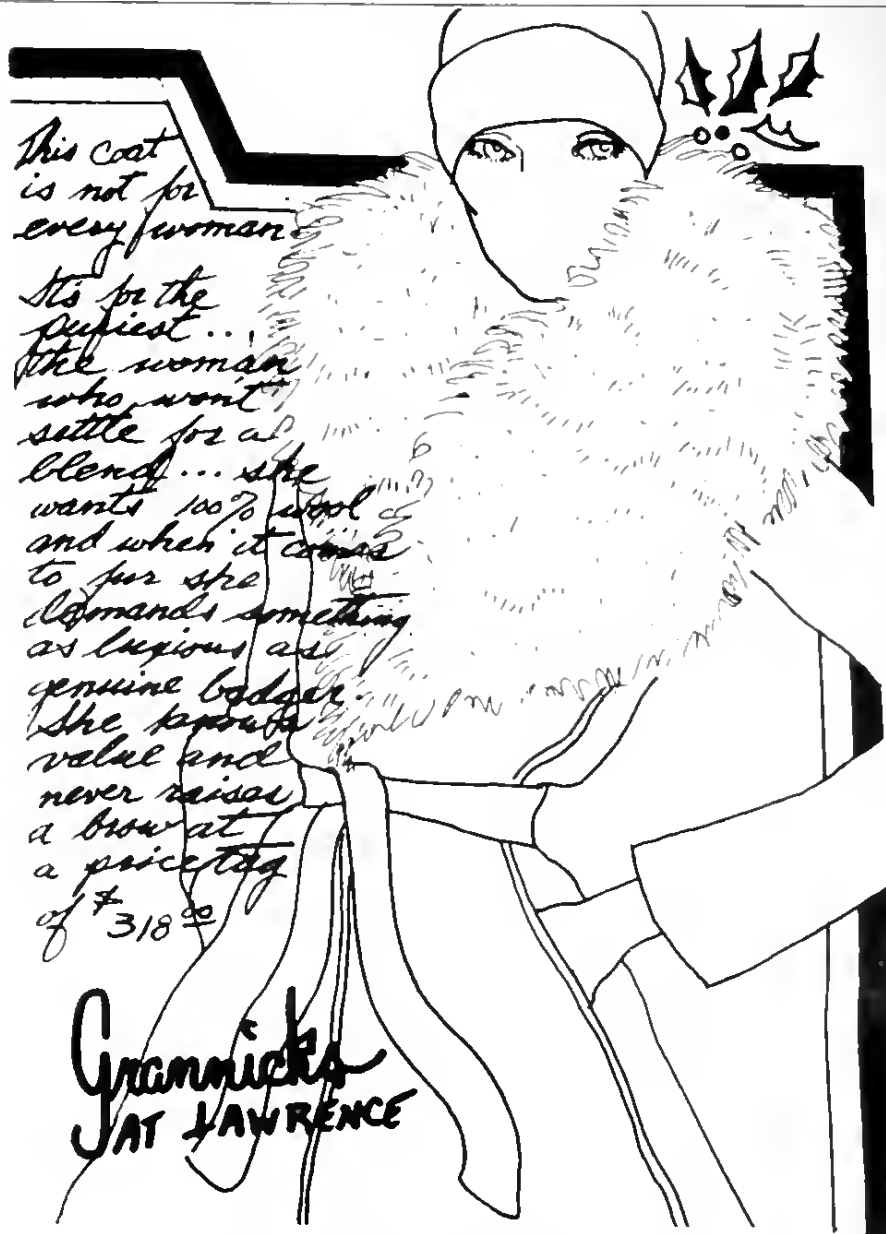 This coat
is not for
every woman.
It's for the
puriest...
the woman
who won't
settle for a
blend... she
wants 100% wool
and when it comes
to fur she
demands something
as luxious as
genuine badger.
She knows
value and
never raises
a brow at
a price tag
of $318.00
Grannicks
AT LAWRENCE